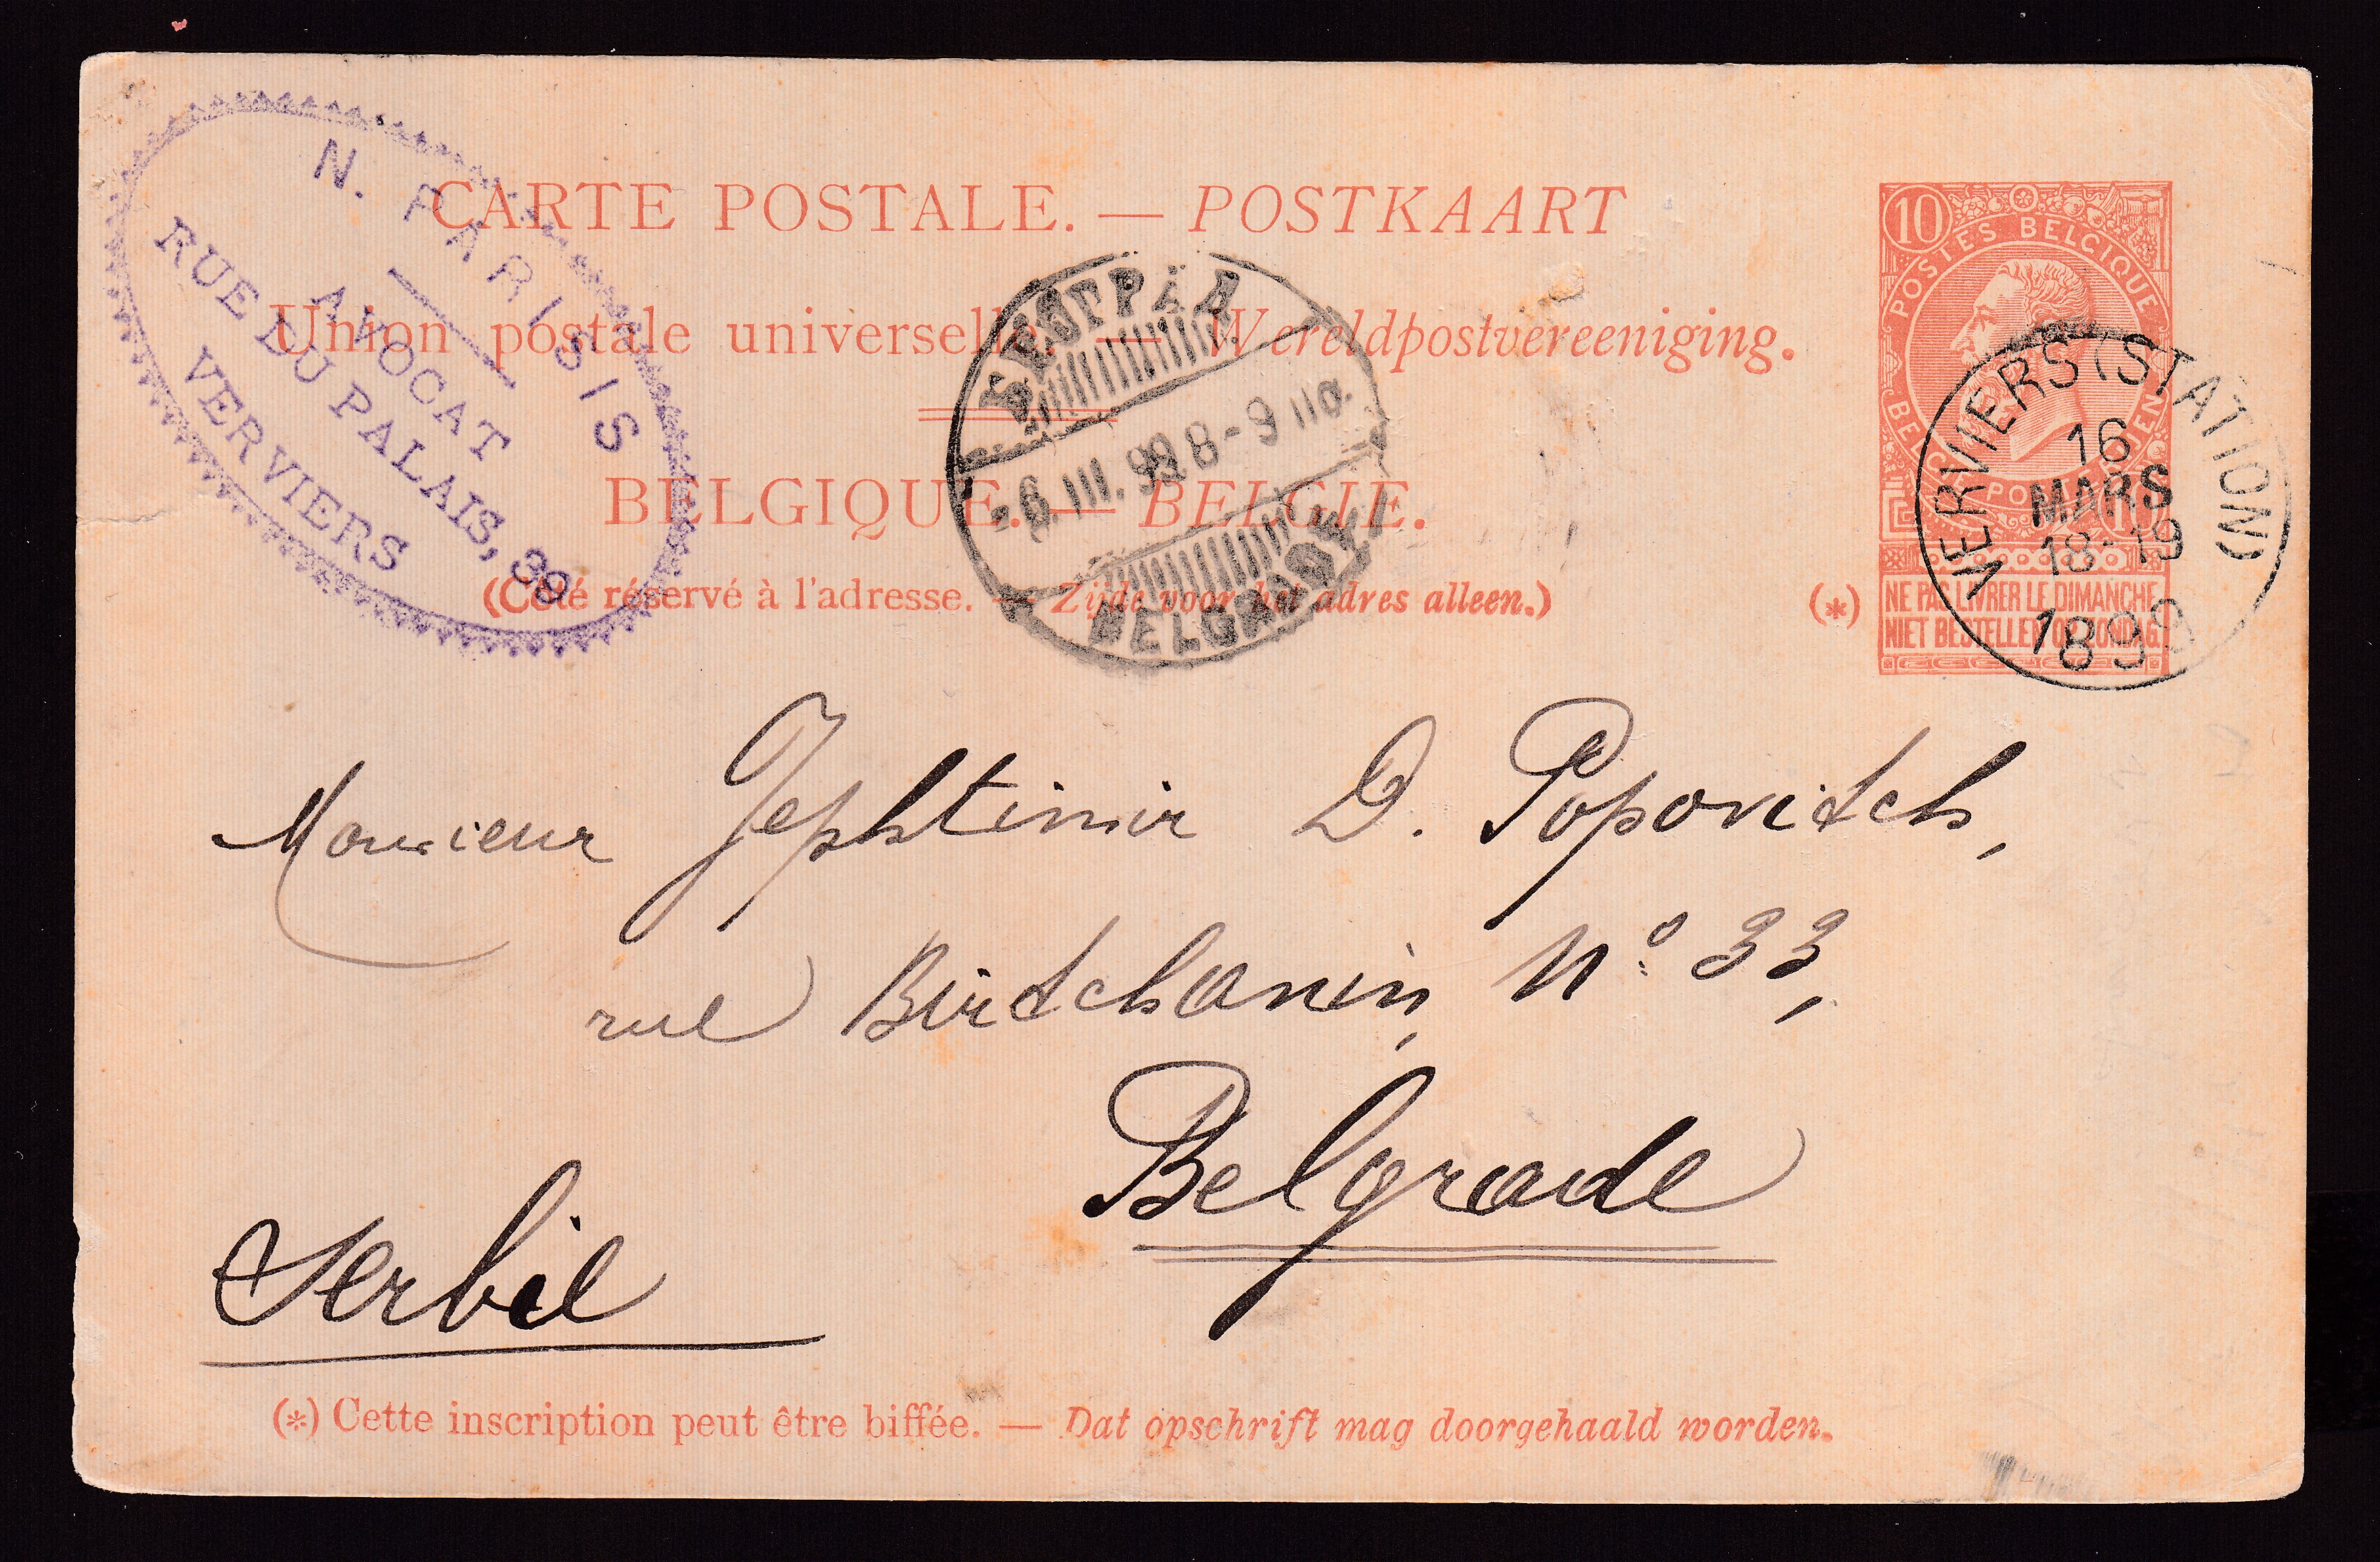 N. PARISIS
AVOCAT
RUE DU PALAIS, 39
VERVIERS
CARTE POSTALE. — POSTKAART
Union postale universelle. — Wereldpostvereeniging.
BELGIQUE. — BELGIE.
(Côté réservé à l'adresse. — Zijde voor het adres alleen.)
БЕОГРАД
-6.III.99.8-9 ПО.
BELGRADE
10
POSTES BELGIQUE
BELGIE POSTERIJEN
10
(*)
NE PAS LIVRER LE DIMANCHE
NIET BESTELLEN OP ZONDAG.
VERVIERS (STATION)
16
MARS
18-19
1899
Monsieur Jephtimir D. Popovitch,
rue Birtchanin, No 33,
Belgrade
Serbie
(*) Cette inscription peut être biffée. — Dat opschrift mag doorgehaald worden.